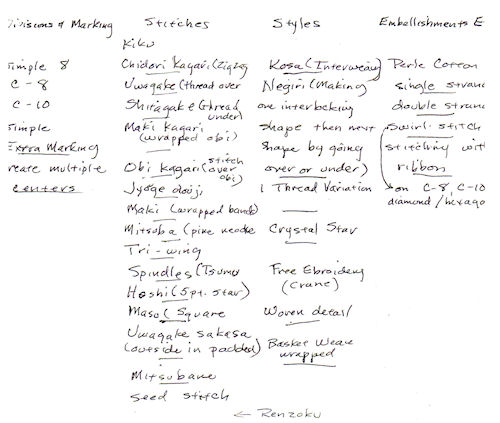 Divisions & Marking
Simple 8
C-8
C-10
Simple
Extra Marking
create multiple
centers
Stitches
Kiku
Chidori Kagari (Zigzag
Uwagake (thread over
Shitagake (thread
under)
Maki Kagari
(wrapped obi)
Obi Kagari (stitch
over
obi)
Jyoge douji
Maki (wrapped bands
Mitsuba (pine needle
Tri-wing
Spindles (Tsumu
Hoshi (5pt. star)
Masu (Square
Uwagake sakasa
(outside in padded)
Mitsubane
seed stitch
← Renzoku
Styles
Kosa (Interweaving
Negiri (Making
one interlocking
shape then next
shape by going
over or under)
1 Thread Variation
Crystal Star
Free Ebroidery
(crane)
Woven detail
Basket Weave
wrapped
Embellishments E
Perle Cotton
single stran
double stran
Swirl stitch
stitching wit
ribbon
on C-8, C-10
diamond/hexago